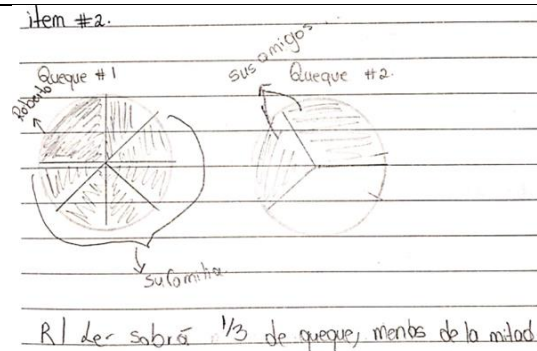 item #2.
Queque #1
Roberto
sus amigos
Queque #2.
su familia
R/ Le sobró 1/3 de queque, menos de la mitad